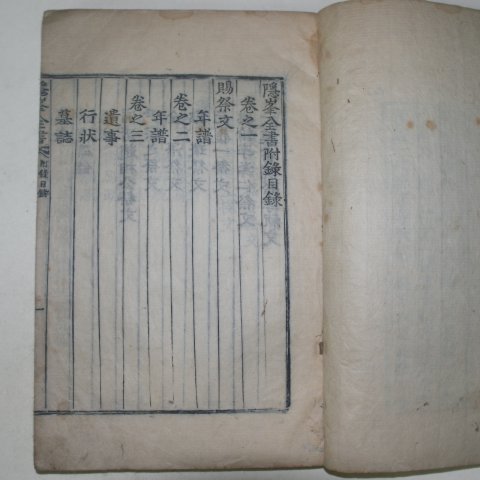 隱峯全書附錄目錄
卷之一
賜祭文
年譜
卷之二
年譜
卷之三
遺事
行狀
墓誌
隱峯全書附錄目錄